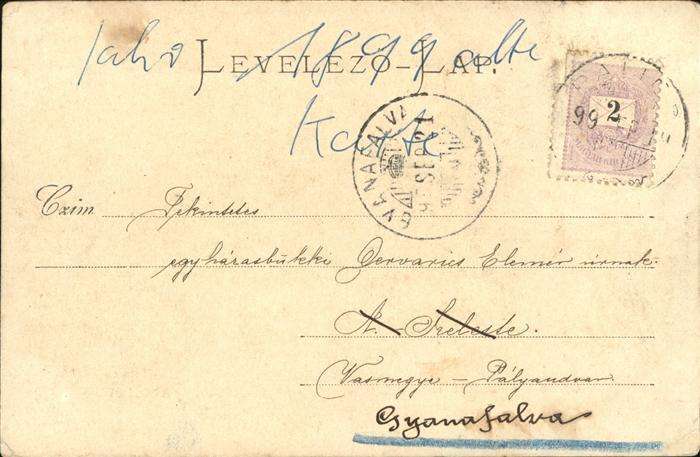 Jahr 1899 alte
LEVELEZŐ-LAP.
Karte
2
99
GYANAFALVA
Czim Tekintetes
egyházasbükki Gervarics Elemér úrnak
N. Szeleste.
Vasmegye – Pályaudvar
Gyanafalva